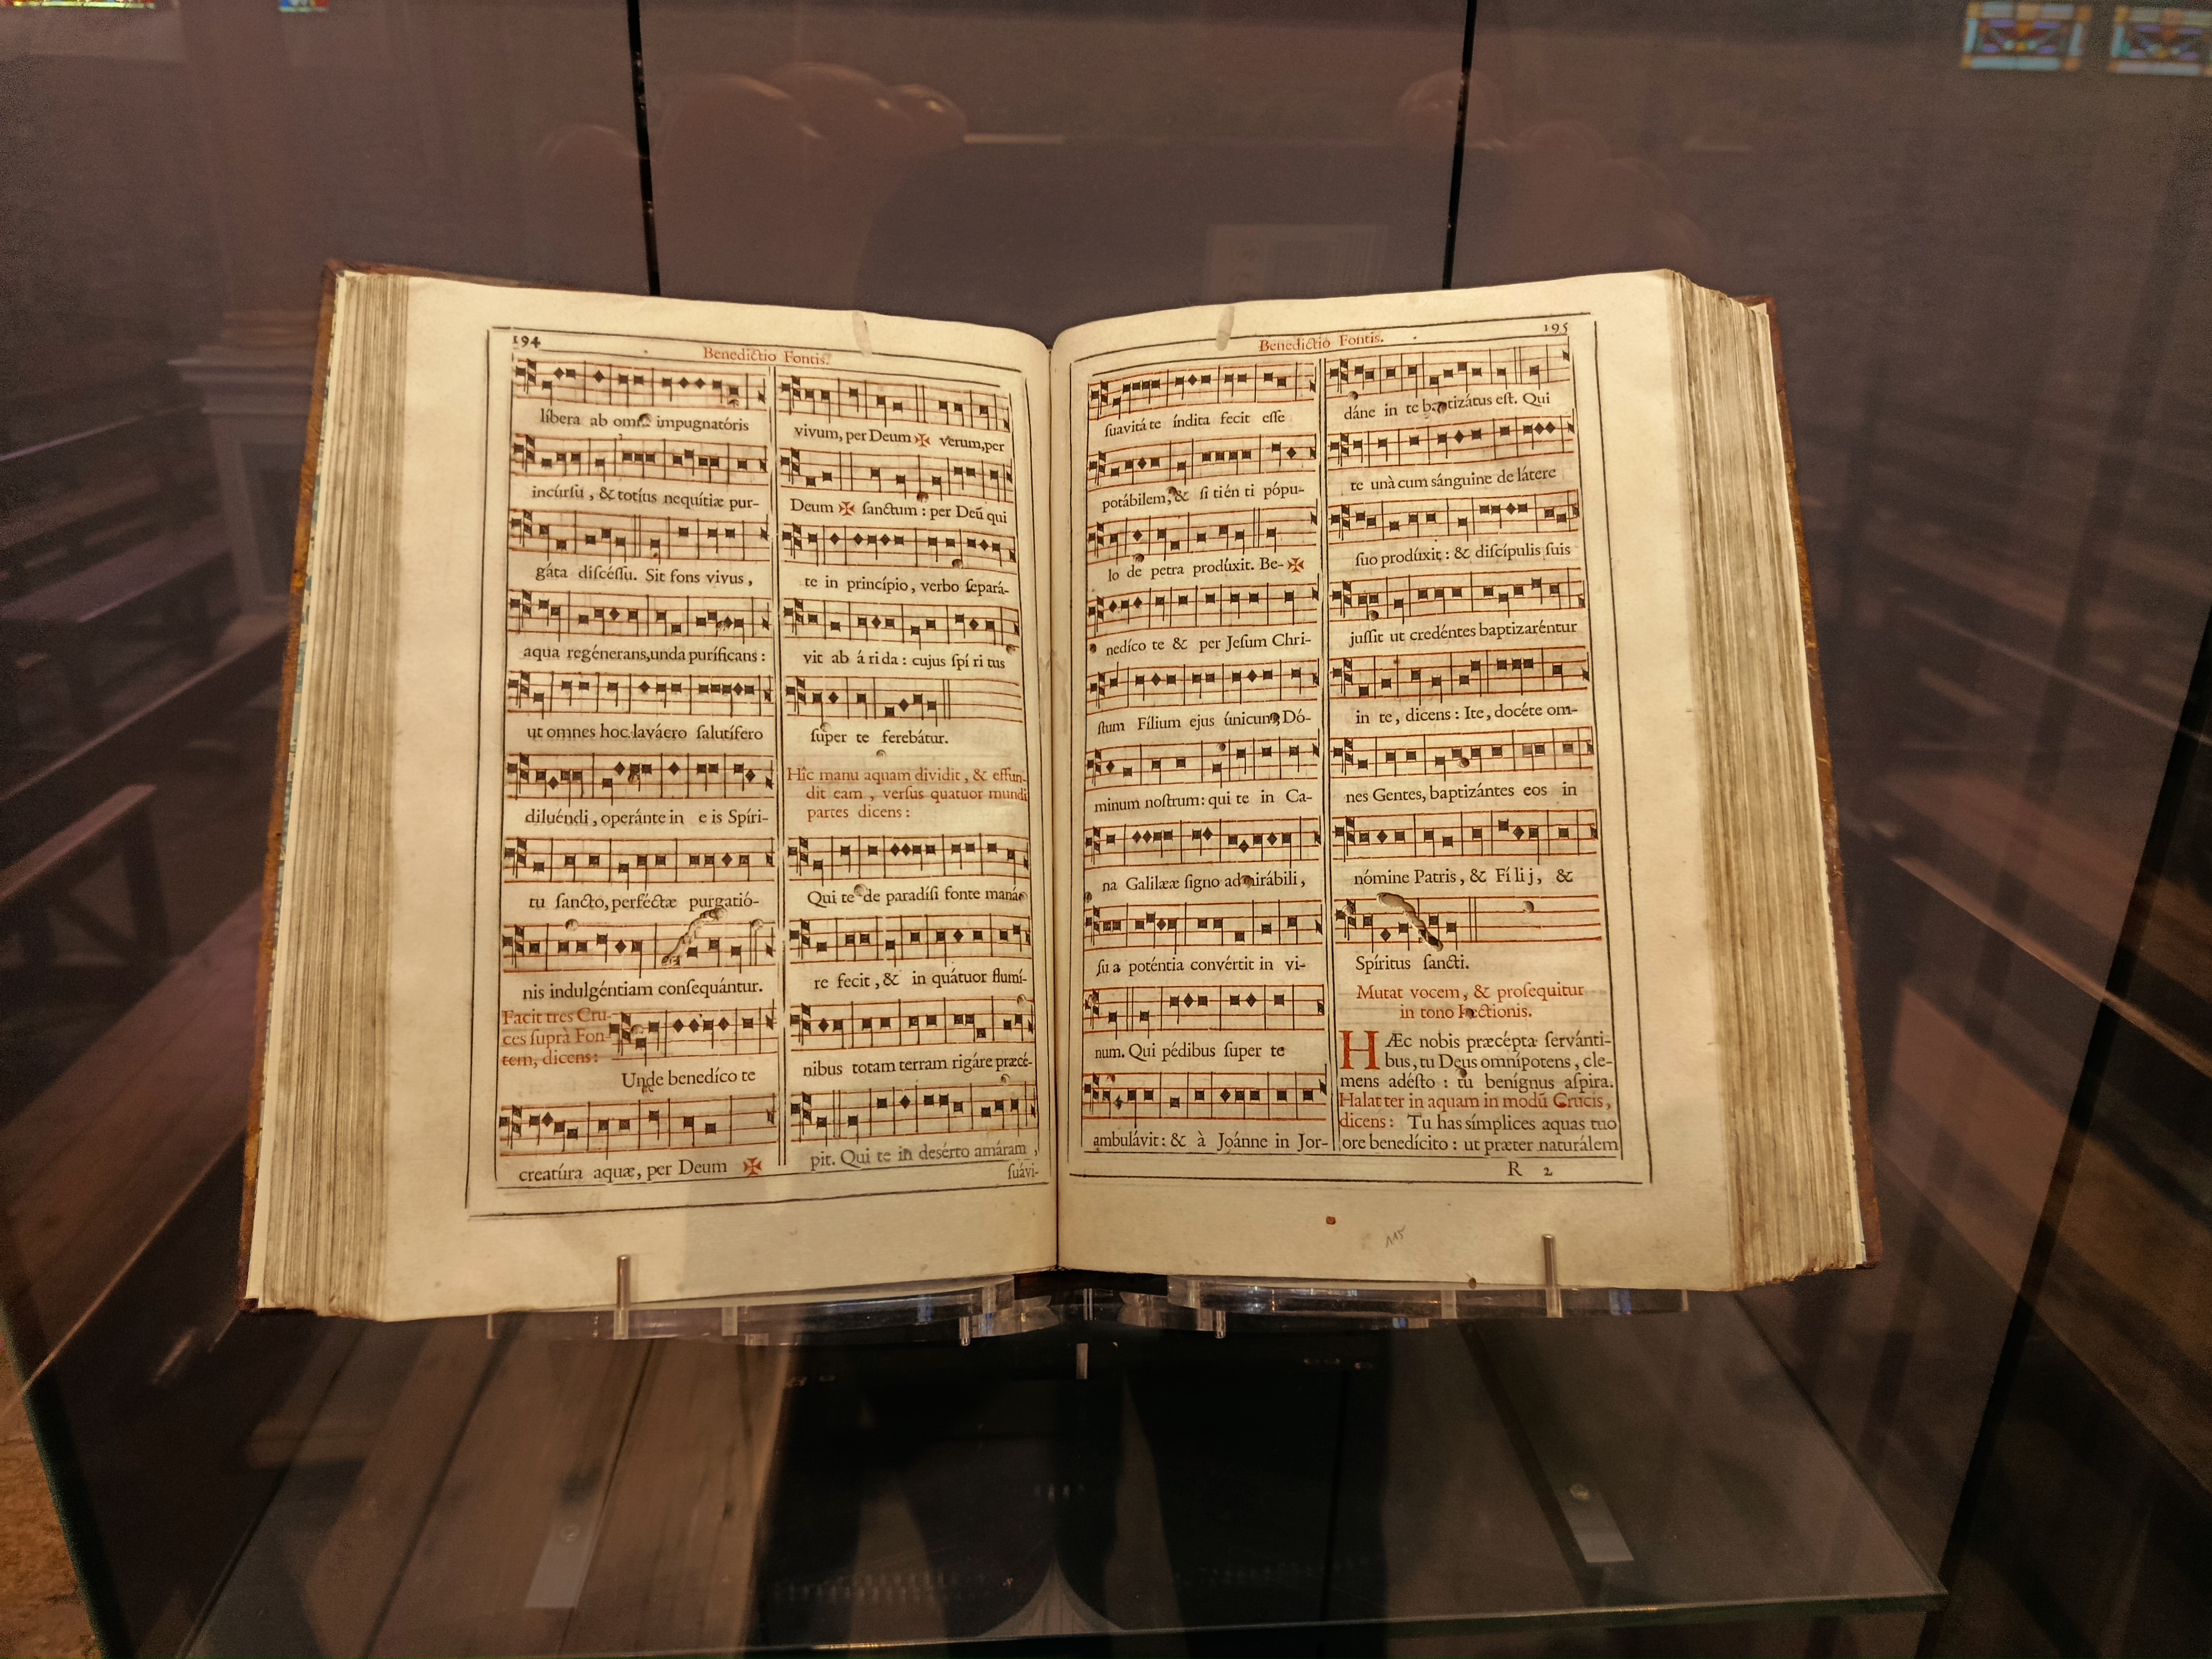 194
Benedictio Fontis.
líbera ab omni impugnatóris
incúrsu, & totíus nequítiæ pur-
gáta discéssu. Sit fons vivus,
aqua regénerans, unda puríficans:
ut omnes hoc lavácro salutífero
diluéndi, operánte in e is Spíri-
tu sancto, perféctæ purgatió-
nis indulgéntiam consequántur.
Facit tres Cru-
ces suprà Fon-
tem, dicens:
Unde benedíco te
creatúra aquæ, per Deum ✠
vivum, per Deum ✠ verum, per
Deum ✠ sanctum: per Deū qui
te in princípio, verbo separá-
vit ab á ri da: cujus spí ri tus
super te ferebátur.
Hîc manu aquam dividit, & effun-
dit eam, versus quatuor mundi
partes dicens:
Qui te de paradísi fonte maná-
re fecit, & in quátuor flumí-
nibus totam terram rigáre præcé-
pit. Qui te in desérto amáram,
suávi-
195
Benedictio Fontis.
suavitá te índita fecit esse
potábilem, & si tién ti pópu-
lo de petra prodúxit. Be- ✠
nedíco te & per Jesum Chri-
stum Fílium ejus únicum, Dó-
minum nostrum: qui te in Ca-
na Galilææ signo admirábili,
su a poténtia convértit in vi-
num. Qui pédibus super te
ambulávit: & à Joánne in Jor-
dáne in te baptizátus est. Qui
te unà cum sánguine de látere
suo prodúxit: & discípulis suis
jussit ut credéntes baptizaréntur
in te, dicens: Ite, docéte om-
nes Gentes, baptizántes eos in
nómine Patris, & Fí li j, &
Spíritus sancti.
Mutat vocem, & prosequitur
in tono Lectionis.
HÆc nobis præcépta servánti-
bus, tu Deus omnípotens, cle-
mens adésto: tu benígnus aspira.
Halat ter in aquam in modū Crucis,
dicens: Tu has símplices aquas tuo
ore benedícito: ut præter naturálem
R 2
115